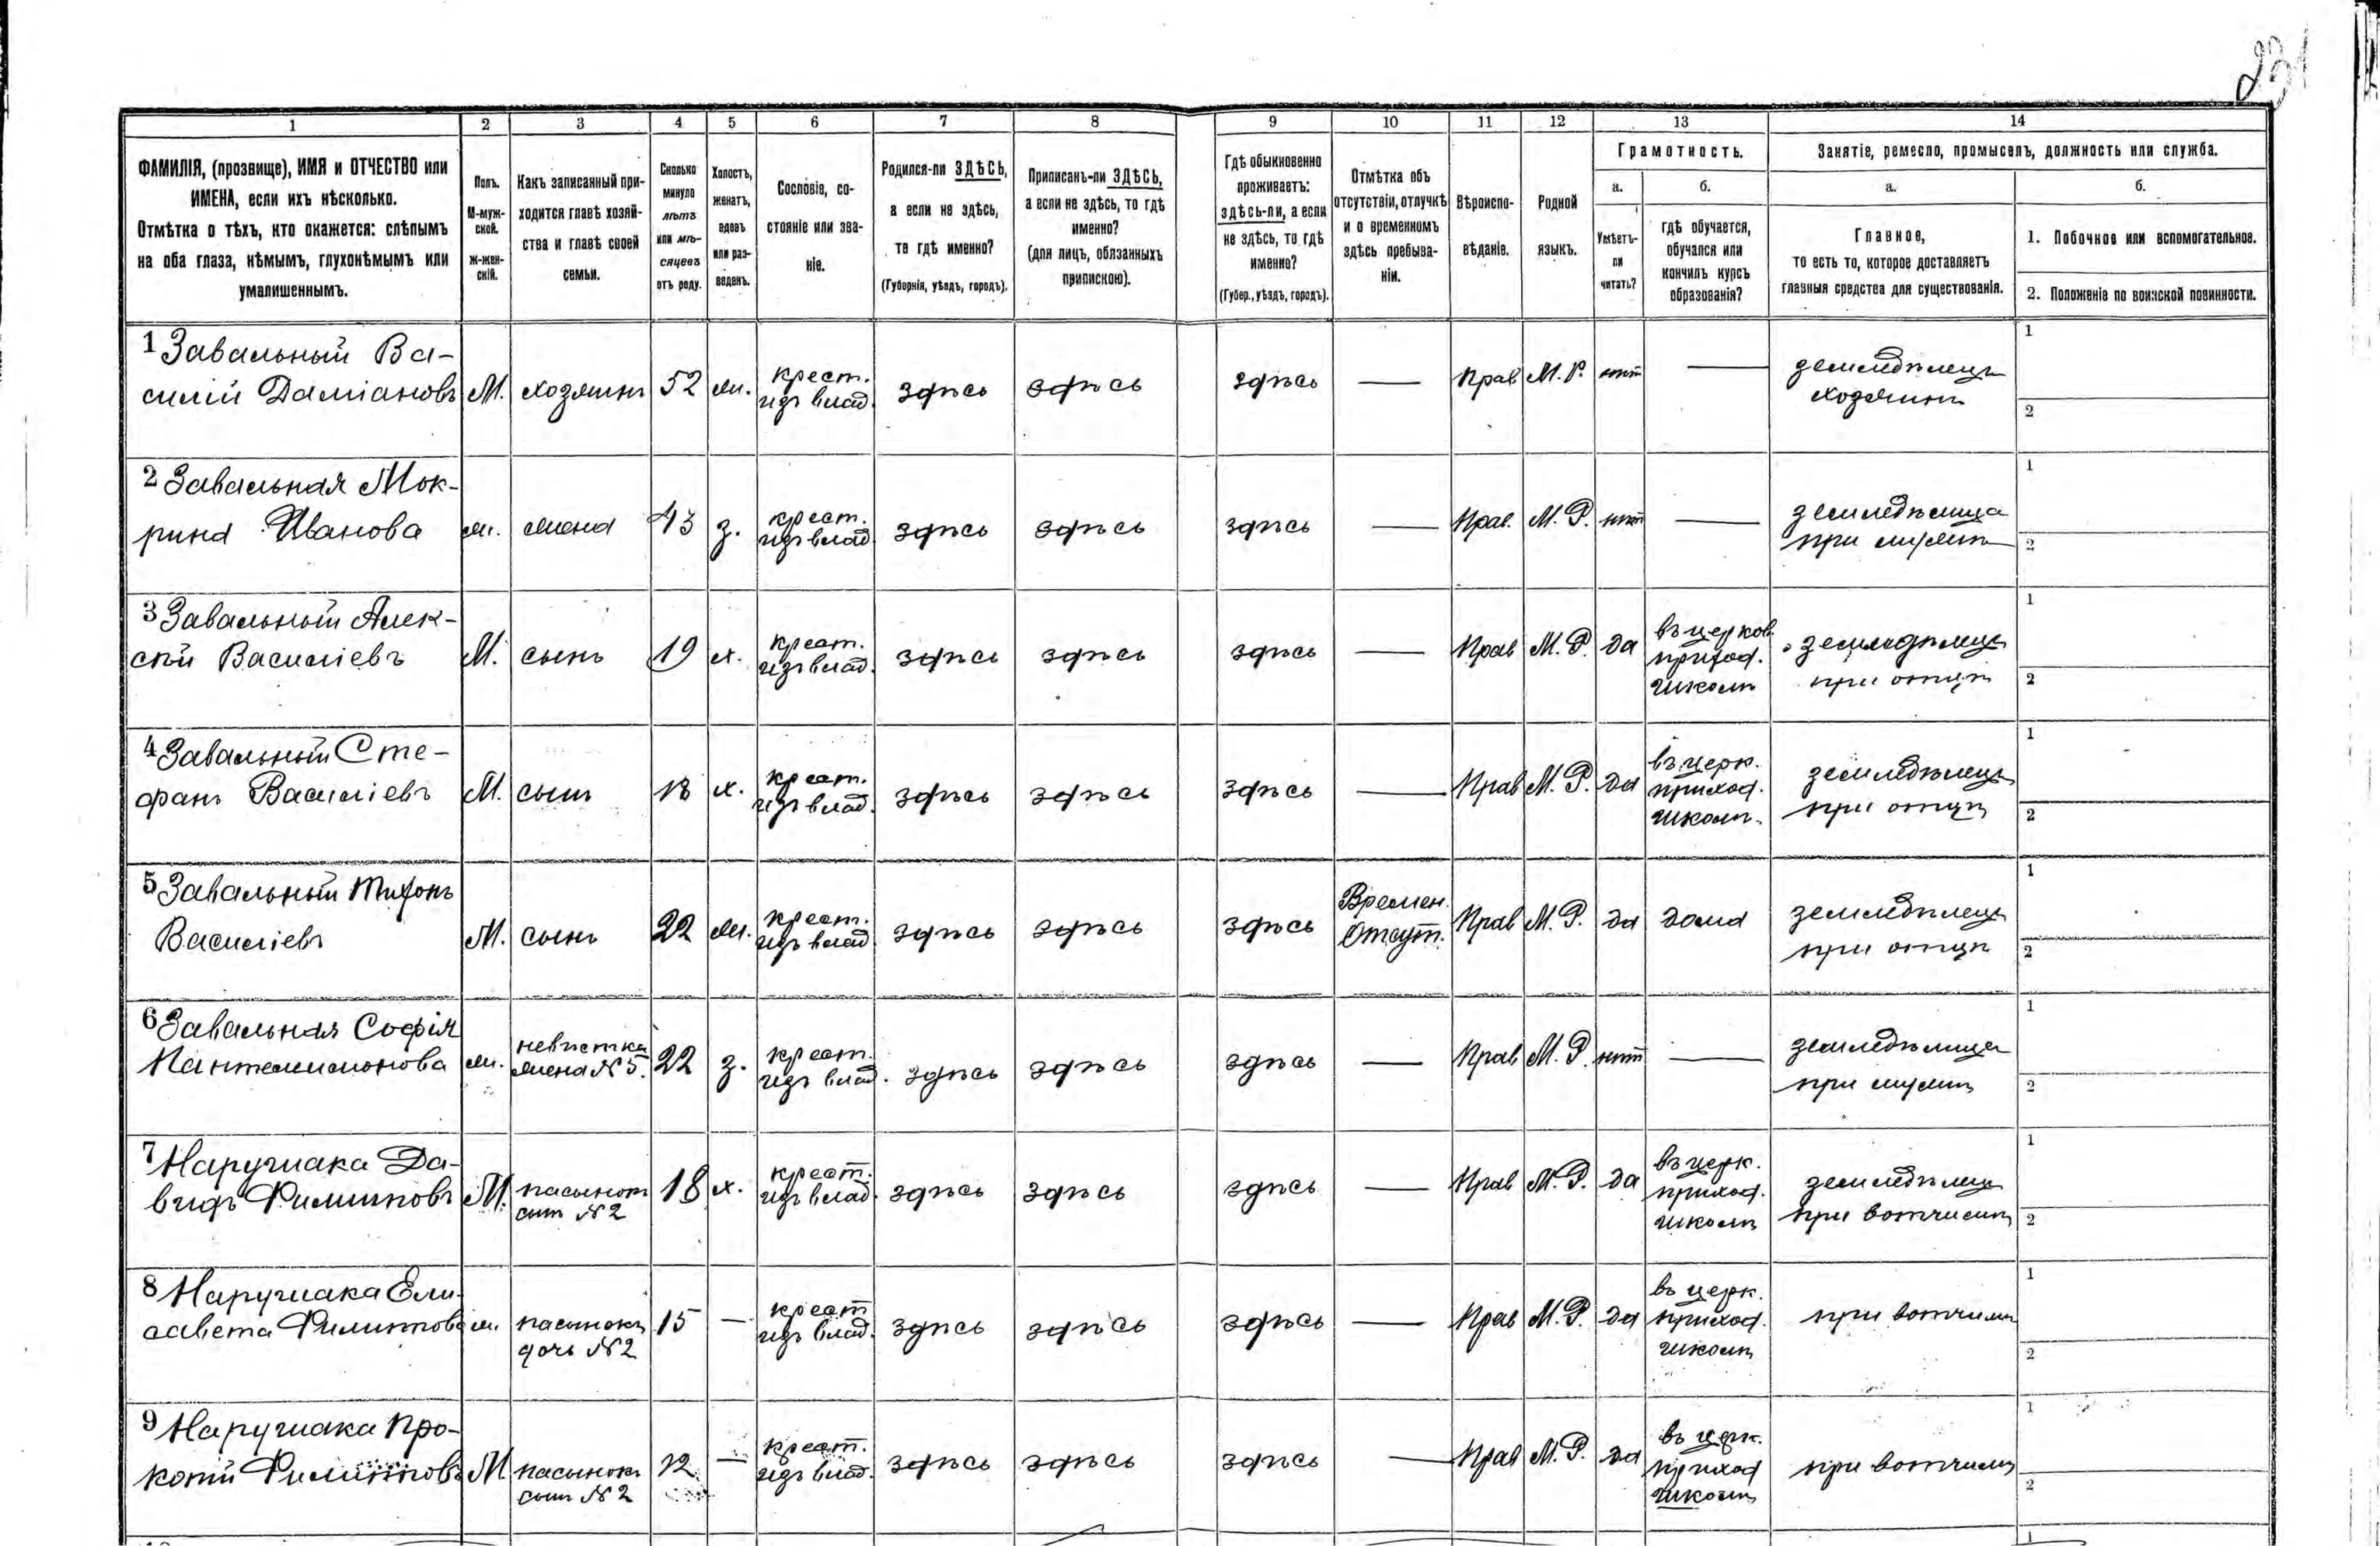 231
1 2 3 4 5 6 7 8 9 10 11 12 13 14
ФАМИЛІЯ, (прозвище), ИМЯ и ОТЧЕСТВО или
ИМЕНА, если ихъ нѣсколько.
Отмѣтка о тѣхъ, кто окажется: слѣпымъ
на оба глаза, нѣмымъ, глухонѣмымъ или
умалишеннымъ.
Полъ.
М-муж-
ской.
Ж-жен-
скій.
Какъ записанный при-
ходится главѣ хозяй-
ства и главѣ своей
семьи.
Сколько
минуло
лѣтъ
или мѣ-
сяцевъ
отъ роду.
Холостъ,
женатъ,
вдовъ
или раз-
веденъ.
Сословіе, со-
стояніе или зва-
ніе.
Родился-ли ЗДѢСЬ,
а если не здѣсь,
то гдѣ именно?
(Губернія, уѣздъ, городъ).
Приписанъ-ли ЗДѢСЬ,
а если не здѣсь, то гдѣ
именно?
(для лицъ, обязанныхъ
припискою).
Гдѣ обыкновенно
проживаетъ:
здѣсь-ли, а если
не здѣсь, то гдѣ
именно?
(Губер., уѣздъ, городъ).
Отмѣтка объ
отсутствіи, отлучкѣ
и о временномъ
здѣсь пребыва-
ніи.
Вѣроиспо-
вѣданіе.
Родной
языкъ.
Грамотность.
а.
Умѣетъ-
ли
читать?
б.
гдѣ обучается,
обучался или
кончилъ курсъ
образованія?
Занятіе, ремесло, промыселъ, должность или служба.
а.
Главное,
то есть то, которое доставляетъ
главныя средства для существованія.
б.
1. Побочное или вспомогательное.
2. Положеніе по воинской повинности.
1 Завальный Ва-
силій Даміановъ
М.
хозяинъ
52
ж.
крест.
изъ влад.
здѣсь
здѣсь
здѣсь
—
Прав
М. Р.
нѣт
—
земледѣлецъ
хозяинъ
1
2
2 Завальная Мок-
рина Иванова
ж.
жена
43
з.
крест.
изъ влад.
здѣсь
здѣсь
здѣсь
—
Прав.
М. Р.
нѣт
—
земледѣлица
при мужѣ
1
2
3 Завальный Алек-
сѣй Василіевъ
М.
сынъ
19
х.
крест.
изъ влад.
здѣсь
здѣсь
здѣсь
—
Прав
М. Р.
да
въ церков.
приход.
школѣ
земледѣлецъ
при отцѣ
1
2
4 Завальный Сте-
фанъ Василіевъ
М.
сынъ
х.
крест.
изъ влад.
здѣсь
здѣсь
здѣсь
—
Прав
М. Р.
да
въ церк.
приход.
школѣ.
земледѣлецъ
при отцѣ
1
2
5 Завальный Тихонъ
Василіевъ
М.
сынъ
22
ж.
крест.
изъ влад
здѣсь
здѣсь
здѣсь
Времен.
Отсут.
Прав
М. Р.
да
дома
земледѣлецъ
при отцѣ
1
2
6 Завальная Софія
Пантелимонова
ж.
невѣстка
жена № 5.
22
з.
крест.
изъ влад.
здѣсь
здѣсь
здѣсь
—
Прав
М. Р
нѣт
—
земледѣлица
при мужѣ
1
2
7 Наружака Да-
видъ Филиповъ
М.
пасынокъ
сын № 2
18
х.
крест.
изъ влад.
здѣсь
здѣсь
здѣсь
—
Прав
М. Р.
да
въ церк.
приход.
школѣ
земледѣлецъ
при вотчимѣ
1
2
8 Наружака Ели-
савета Филипова
ж.
пасынокъ
дочь № 2
15
—
крест
изъ влад.
здѣсь
здѣсь
здѣсь
—
Прав
М. Р.
да
въ церк.
приход.
школѣ
при вотчимѣ
1
2
9 Наружака Про-
копій Филиповъ
М
пасынокъ
сын № 2
12
—
крест.
изъ влад.
здѣсь
здѣсь
здѣсь
—
Прав
М. Р.
да
въ церк.
приход
школѣ
при вотчимѣ
1
2
1